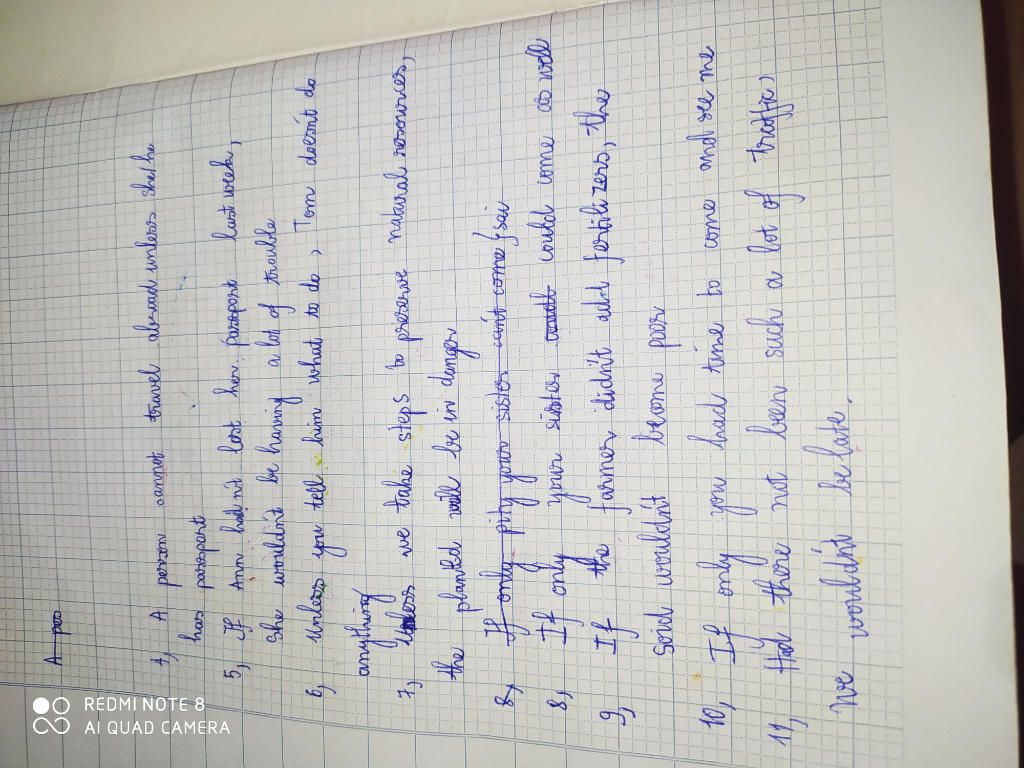 A pas
4, A person cannot travel abroad unless she/he
has passport
5, If Ann hadn't lost her passport last week,
She wouldn't be having a lot of trouble
6, Unless you tell him what to do, Tom doesn't do
anything
7, Unless we take steps to preserve natural resources,
the planted will be in danger
8, If only pity your sister can't come
8, If only your sister could come as well
9, If the farmer didn't add fertilizers, the
Soid wouldn't become poor
10, If only you had time to come and see me
11, Had there not been such a lot of traffic,
We wouldn't be late.
REDMI NOTE 8
AI QUAD CAMERA